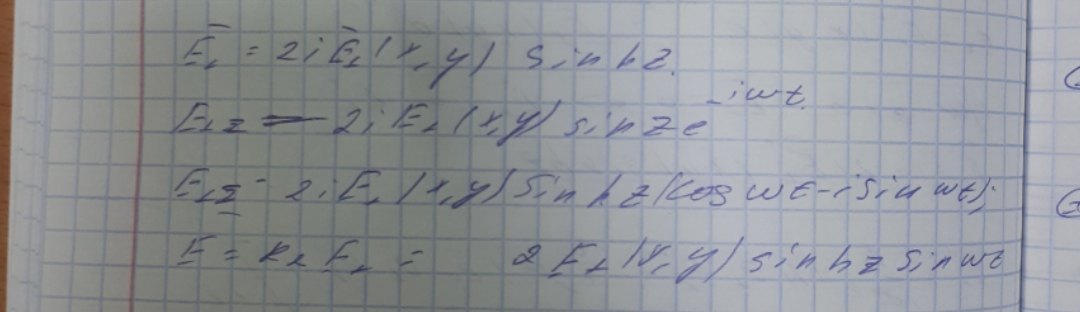 Ē₁ = 2i Ē₁(x,y) sin hz.
E₁z = 2i E₁(x,y) sin z e^-iωt.
E₁z = 2i E₁(x,y) sin hz (cos ωt - i sin ωt);
E = Re E₁ = 2E₁(x,y) sin hz sin ωt